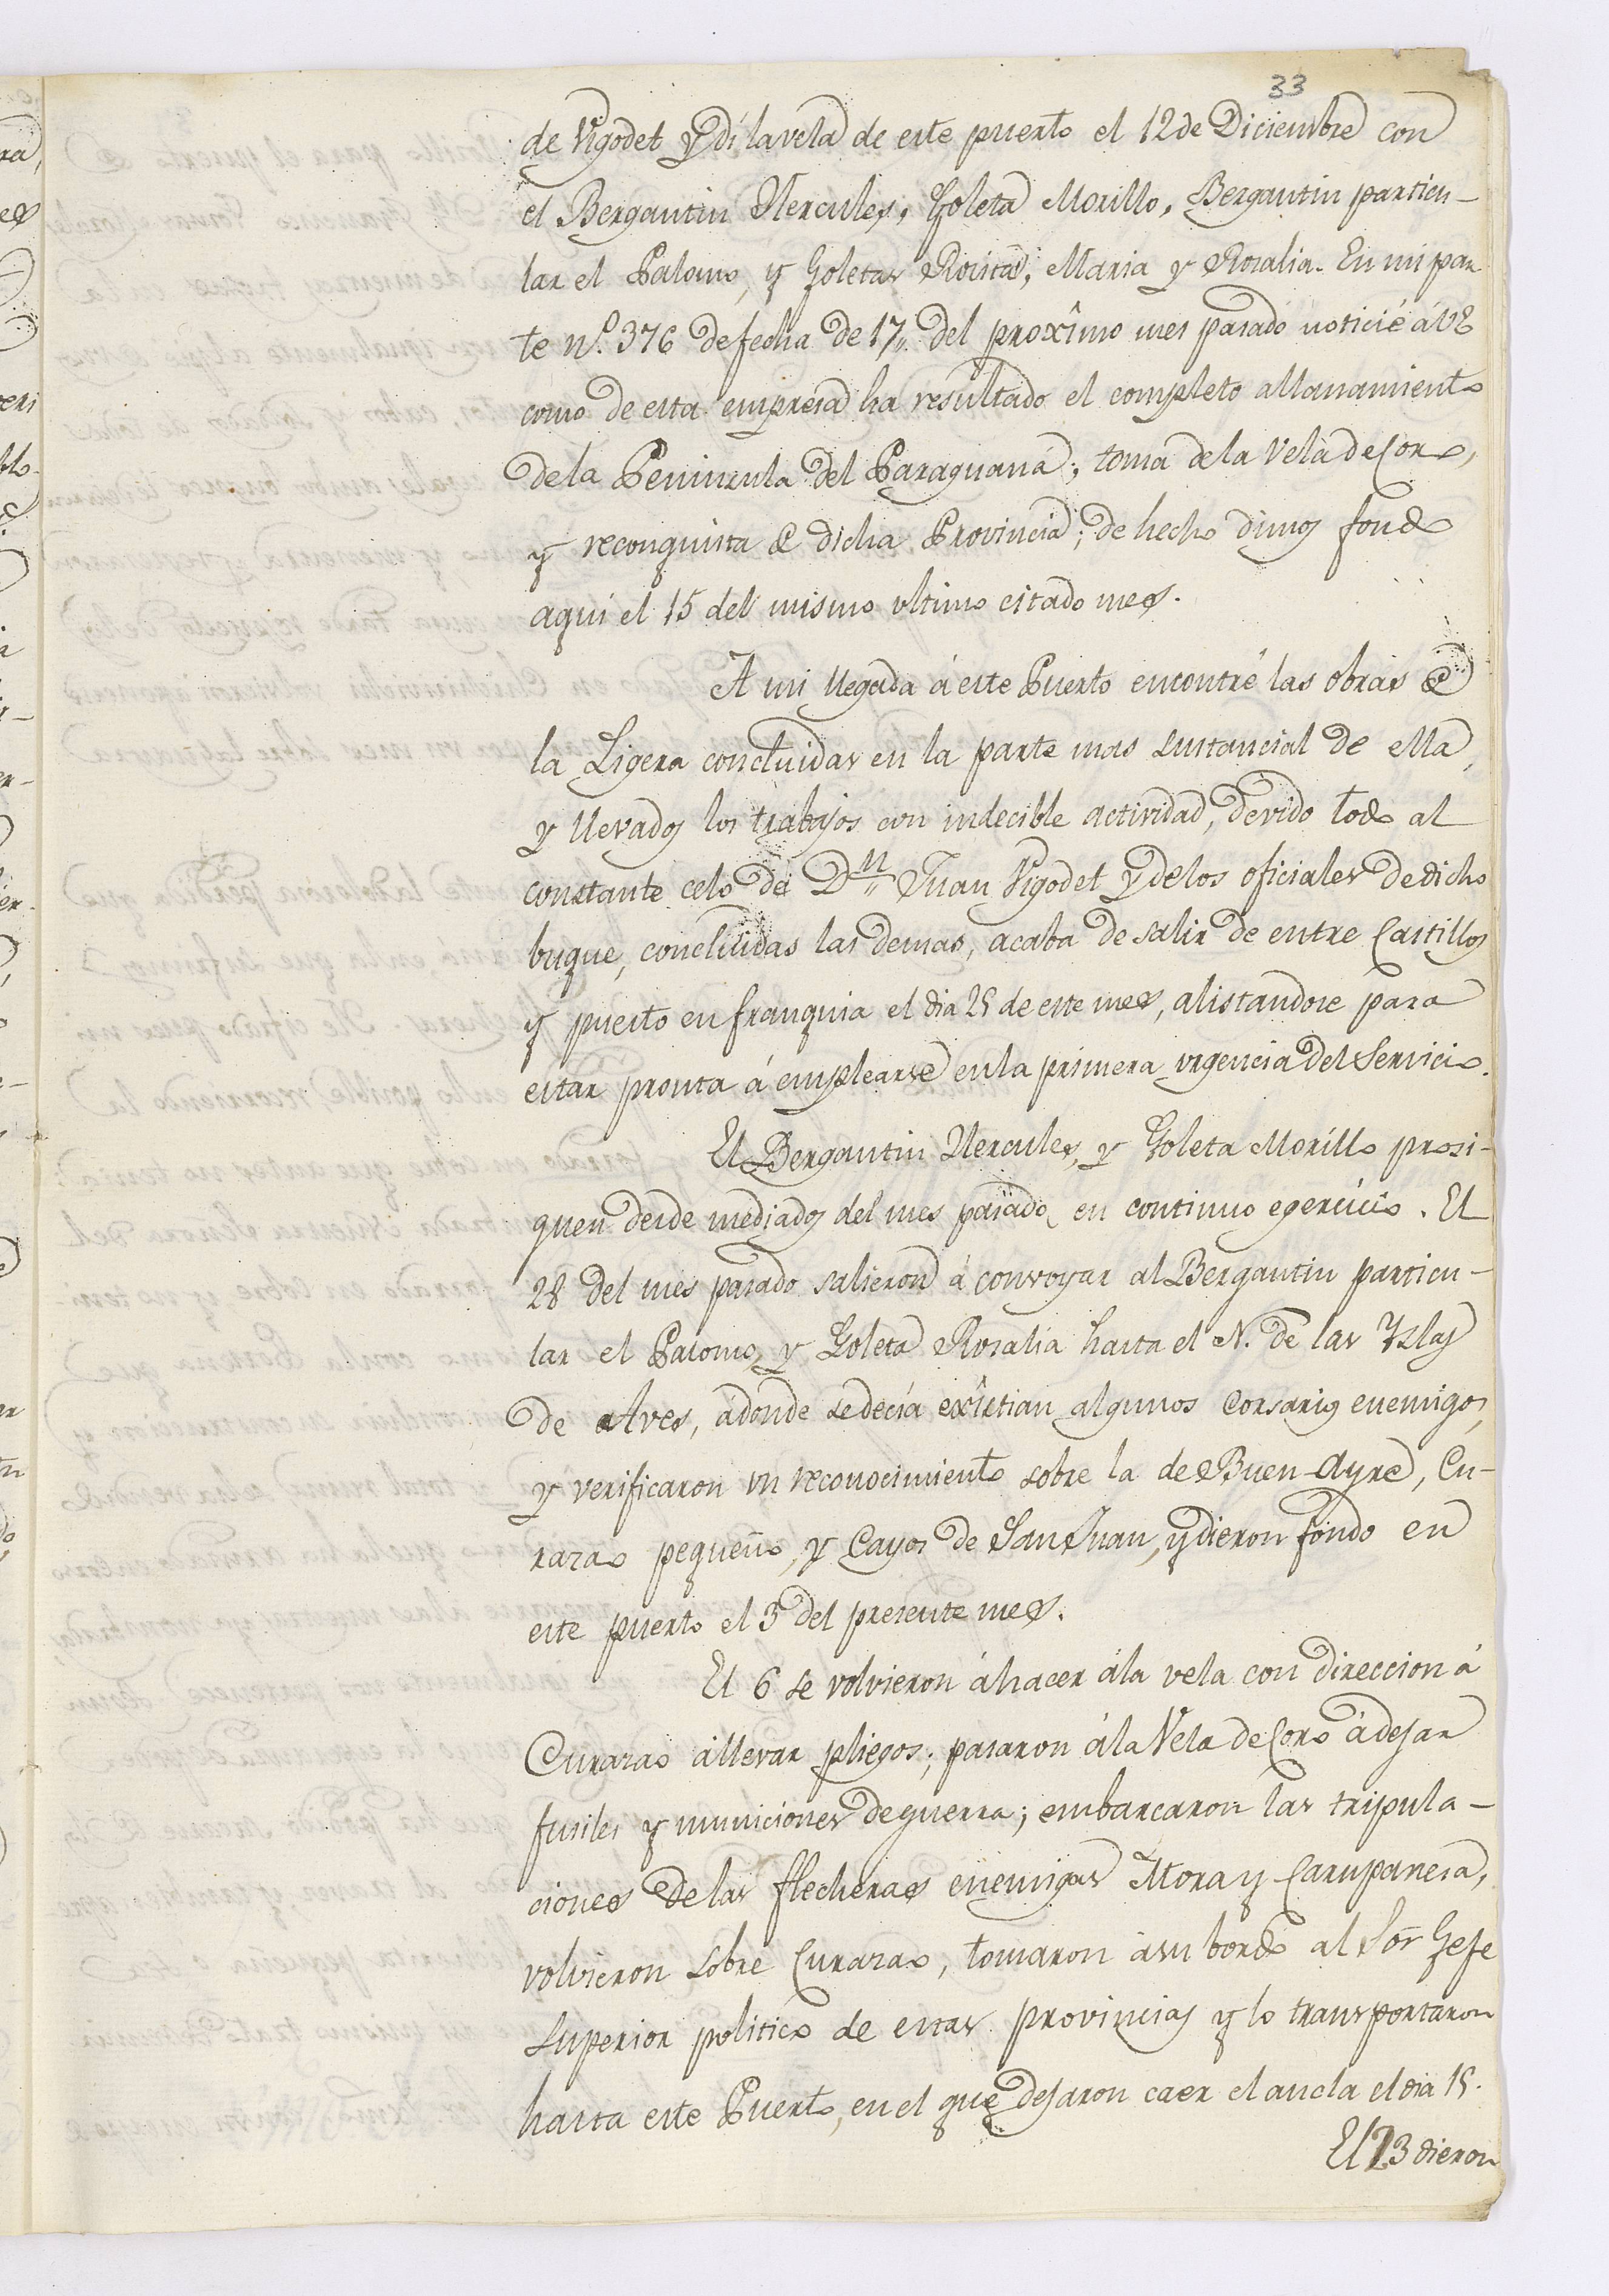 33
de Vigodet y dí la vela de este puerto el 12 de Diciembre con
el Bergantin Hercules, Goleta Morillo, Bergantin particu-
lar el Palomo, y Goletas Rosita, Maria y Rosalia. En mi par
te nº. 376 de fecha de 17,, del proxîmo mes pasado noticié á VE
como de esta empresa ha resultado el completo allanamiento
de la Peninzula del Paraguaná; toma de la Vela de Coro,
y reconquista de dicha Provincia; de hecho dimos fondo
aquí el 15 del mismo ultimo citado mes.
A mi llegada á este Puerto encontré las obras de
la Ligera concluidas en la parte mas sustancial de ella,
y llevados los trabajos con indecible actividad, devido todo al
constante celo de Dn. Juan Vigodet y de los oficiales de dicho
buque, concluidas las demas, acaba de salir de entre Castillos
y puesto en franquia el dia 25 de este mes, alistandose para
estar pronta á emplearse en la primera urgencia del Servicio.
El Bergantin Hercules, y Goleta Morillo prosi-
guen desde mediados del mes pasado en continuo egercicio. El
28 del mes pasado salieron á convoyar al Bergantin particu-
lar el Palomo, y Goleta Rosalia hasta el N. de las Yslas
de Aves, ádonde se decía exîstian algunos Corsarios enemigos,
y verificaron un reconocimiento sobre la de Buen-Ayre, Cu-
razao pequeño, y Cayos de San Juan, y dieron fondo en
este puerto el 3 del presente mes.
El 6 se volvieron áhacer ála vela con direccion á
Curazao állevar pliegos; pasaron ála Vela de Coro ádejar
fusiles y municiones de guerra; embarcaron las tripula-
ciones de las flecheras enemigas Flora y Carupanera,
volvieron sobre Curazao, tomaron ásu bordo al Sor Gefe
superior politico de estas provincias y lo transportaron
hasta este Puerto, en el que dejaron caer el ancla el dia 15.
El 23 dieron